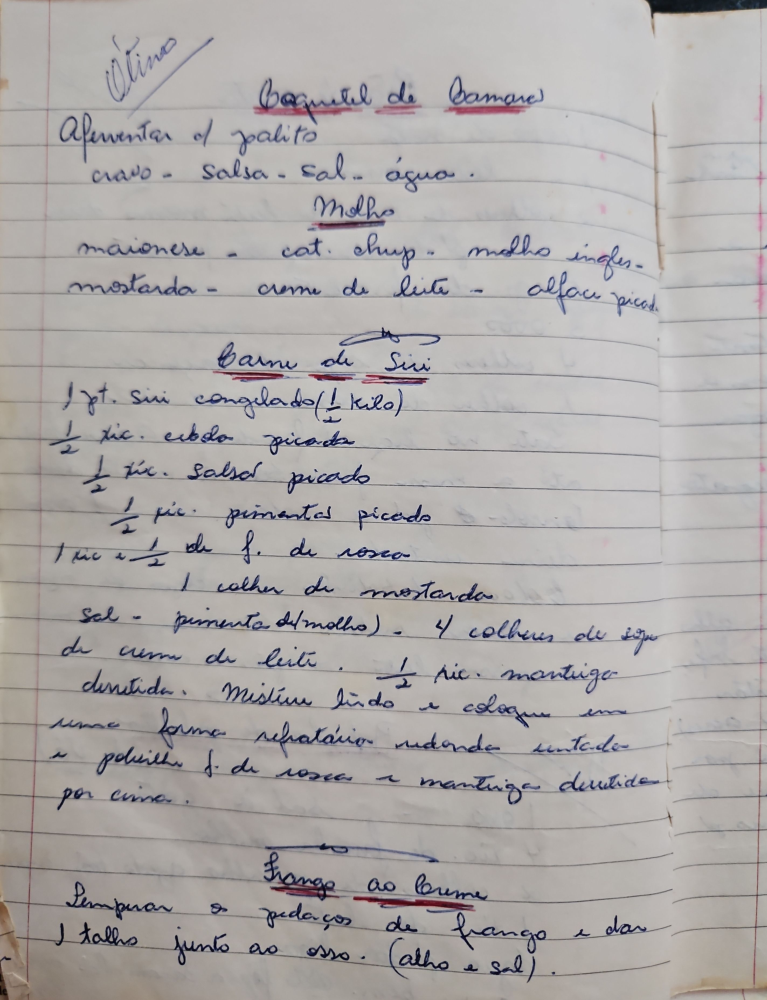 Ótimo
Coquetel de Camarão
Aferventar c/ palito
cravo - salsa - sal - água.
Molho
maionese - cat. chup - molho ingles -
mostarda - creme de leite - alface picada
Carne de Siri
1 pt. siri congelado (1/2 kilo)
1/2 xic. cebola picada
1/2 xic. salsa picado
1/2 xic. pimentas picado
1 xic e 1/2 de f. de rosca
1 colher de mostarda
sal - pimenta (molho) - 4 colheres de sopa
de creme de leite. 1/2 xic. manteiga
derretida. Misture tudo e coloque em
uma forma refratário redonda untada
e polvilhe f. de rosca e manteiga derretida
por cima.
Frango ao Creme
Temperar os pedaços de frango e dar
1 talho junto ao osso. (alho e sal).